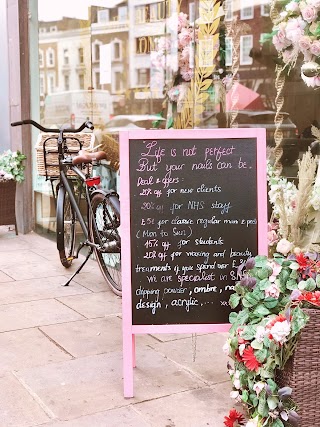 Life is not perfect
But your nails can be.
Deal & offers:
20% off for new clients
20% off for NHS staff
for classic regular mani & pedi
(Mon to Sun)
15% off for students
20% off for waxing and beauty
treatments if you spend over £
We are specialist in SNS
dipping powder, ombre, nail
design, acrylic,...